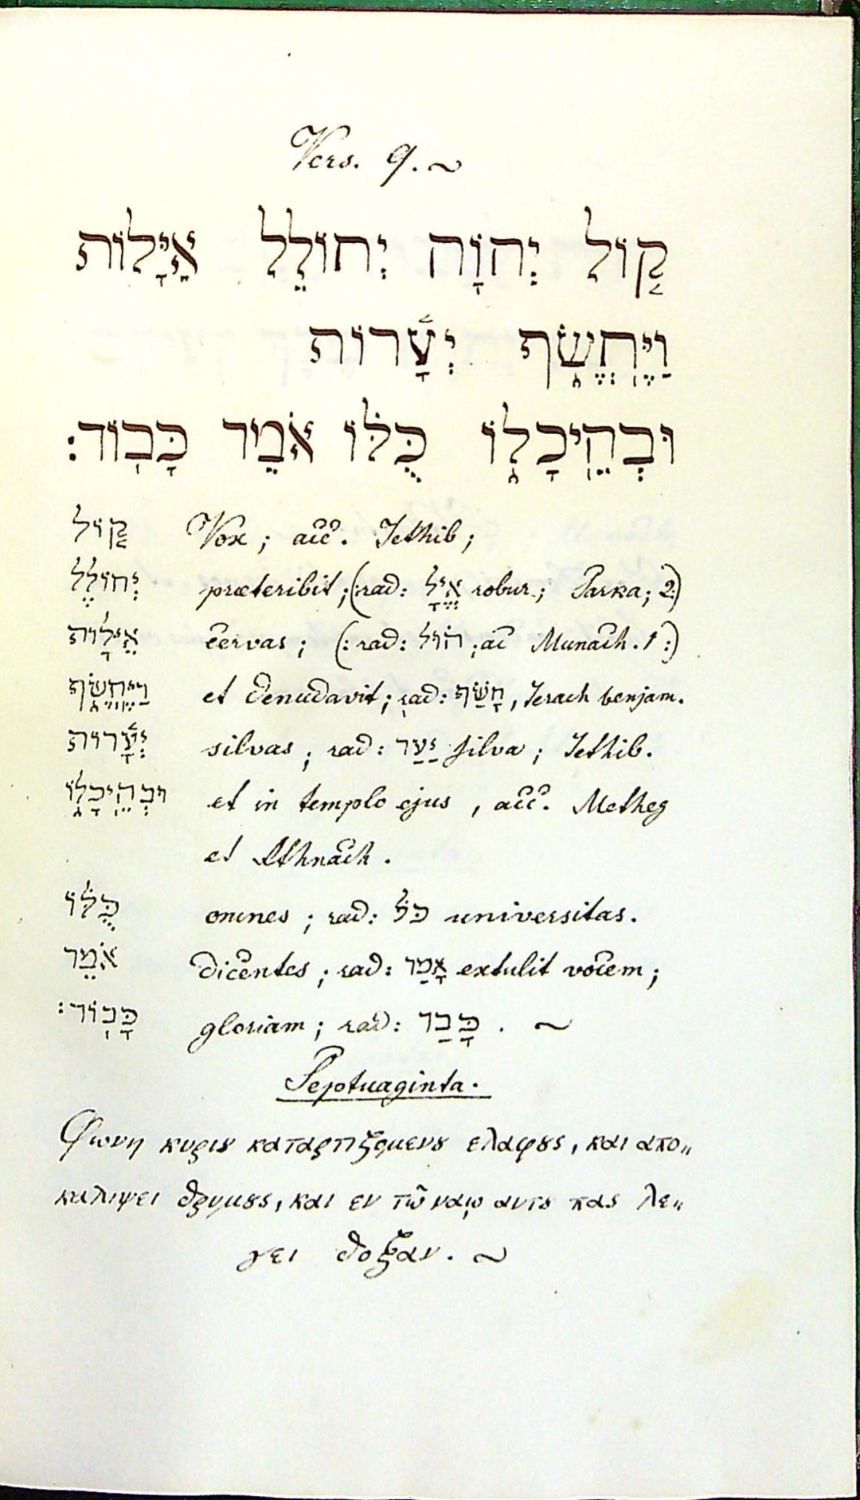 Vers. 9. ~
קוֹל יְהוָה יְחוֹלֵל אַיָּלוֹת
וַיֶּחֱשֹׂף יְעָרוֹת
וּבְהֵיכָלוֹ כֻּלּוֹ אֹמֵר כָּבוֹד׃
קוֹל Vox ; acc. Jethib ;
יְחוֹלֵל præteribit ; (rad: אֱיָל robur ; Sarka ; 2:)
אַיָּלוֹת cervas ; (: rad: חוּל ; ac Munach . 1 :)
וַיֶּחֱשֹׂף et denudavit ; rad: חָשַׂף, Jerach benjam.
יְעָרוֹת silvas ; rad: יַעַר silva ; Jethib.
וּבְהֵיכָלוֹ et in templo ejus , acc. Metheg
et Athnach .
כֻּלּוֹ omnes ; rad: כֹּל universitas.
אֹמֵר dicentes ; rad: אָמַר extulit vocem ;
כָּבוֹד׃ gloriam ; rad: כָּבַד . ~
Septuaginta.
Φωνη κυριȣ καταρτιζομενȣ ελαφȣς, και απο„
καλιψει δρυμȣς, και εν τῶ ναῳ αυτȣ πας λε„
γει δοξαν. ~